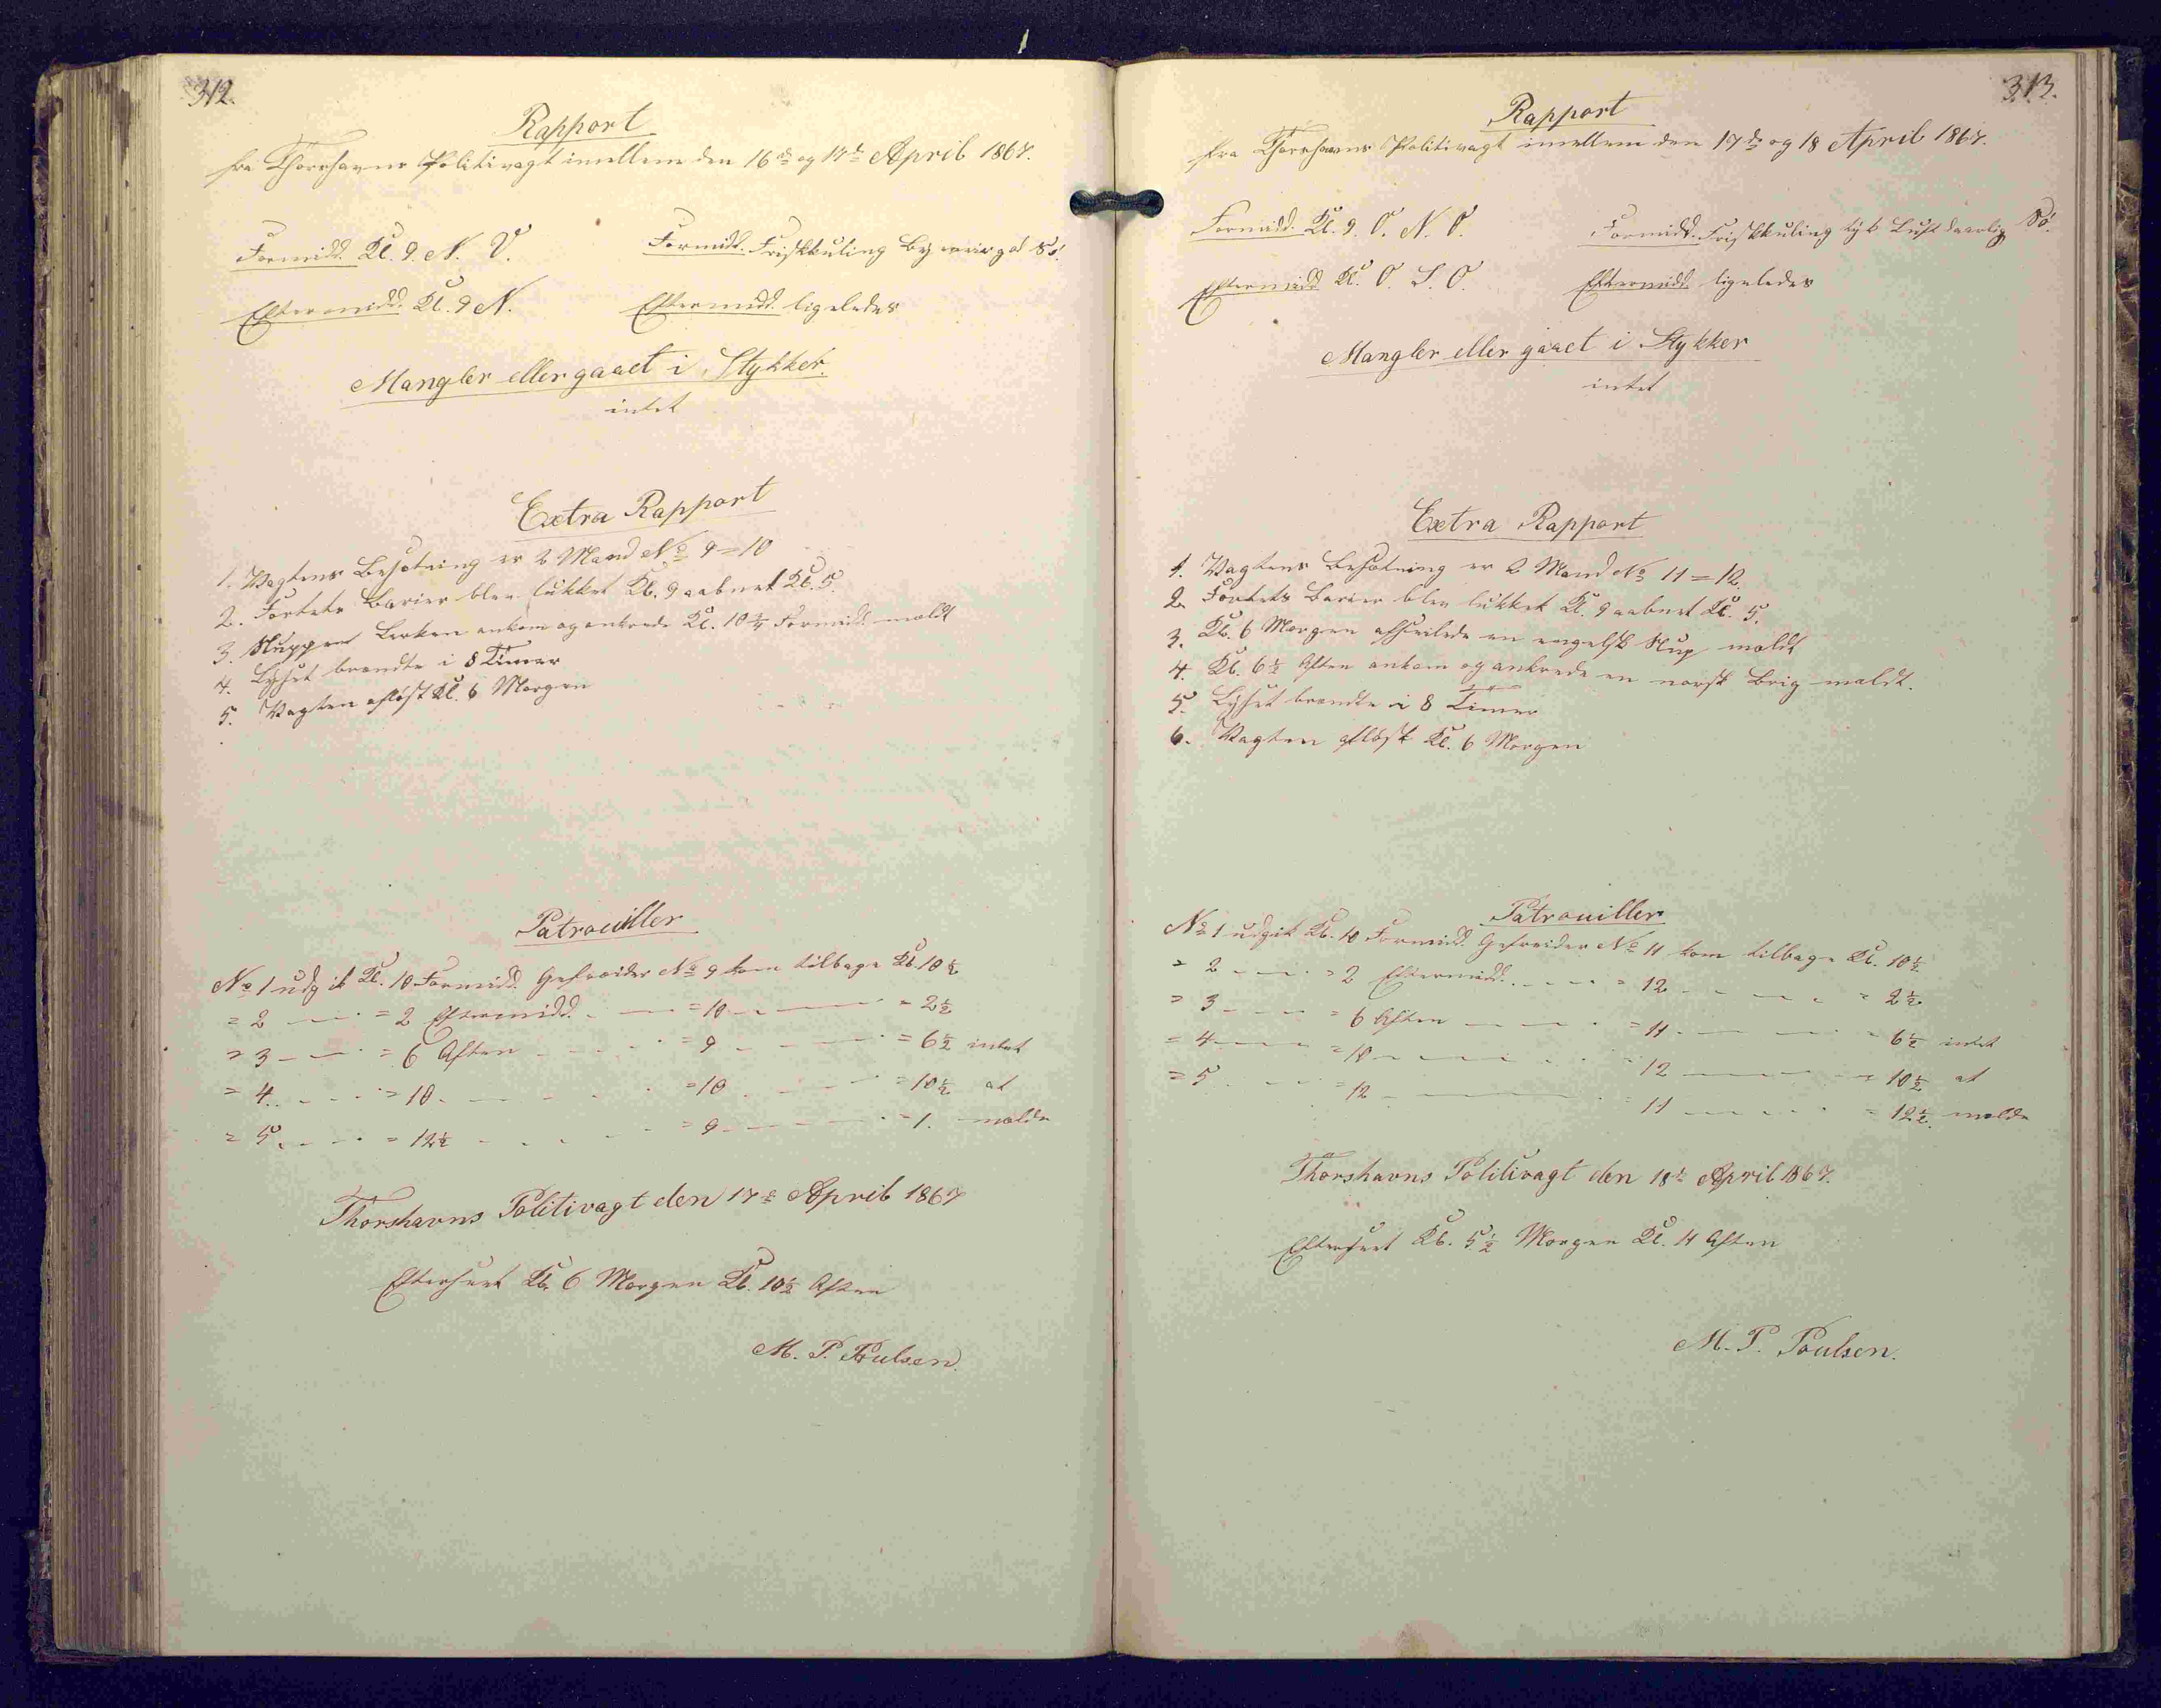 312.
Rapport
fra Thorshavns Politivagt imellem den 16de og 17de April 1867.
Formidd. Kl. 9. N. V.
Formidd. Friskkuling god Sö.
Eftermidd. Kl. 9 N.
Eftermidd. ligeledes
Mangler eller gaaet i Stykker.
intet
Extra Rapport
1. Vagtens Besætning er 2 Mand No 9=10
2. Fortets Barier blev lukket Kl. 9 aabnet Kl. 5.
3. Sluppen Lerken ankom og ankrede Kl. 10 1/4 Formidd. mældt
4. Lyset brændte i 8 Timer
5. Vagten aflöst Kl. 6 Morgen
Patrouiller
No 1 udgik Kl. 10 Formidd. Gefreider No 9 kom tilbage Kl. 10 1/2
= 2 - - = 2 Eftermidd. - - = 10 - - = 2 1/2
= 3 - - = 6 Aften - - = 9 - - = 6 1/2 intet
= 4 - - = 10 - - = 10 - - = 10 1/2 at
= 5 - - = 12 1/2 - - = 9 - - = 1. mælde
Thorshavns Politivagt den 17de April 1867
Efterseet Kl. 6 Morgen Kl. 10 1/2 Aften
M. P. Poulsen.
313.
Rapport
fra Thorshavns Politivagt imellem den 17de og 18 April 1867.
Formidd. Kl. 9. O. N. O.
Formidd. Friskkuling tyk Luft daarlig Sö.
Eftermidd. Kl. O. S. O.
Eftermidd. ligeledes
Mangler eller gaaet i Stykker
intet
Extra Rapport
1. Vagtens Besætning er 2 Mand No 11=12.
2. Fortets Barier blev lukket Kl. 9 aabnet Kl. 5.
3. Kl. 6 Morgen afseilede en engelsk Slup mældt
4. Kl. 6 1/2 Aften ankom og ankrede en norsk Brig mældt.
5. Lyset brændte i 8 Timer
6. Vagten aflöst Kl. 6 Morgen
Patrouiller
No 1 udgik Kl. 10 Formidd. Gefreider No 11 kom tilbage Kl. 10 1/2
= 2 - - = 2 Eftermidd. - - = 12 - - = 2 1/2
= 3 - - = 6 Aften - - = 11 - - = 6 1/2 intet
= 4 - - = 10 - - = 12 - - = 10 1/2 at
= 5 - - = 12 - - = 11 - - = 12 1/2. mælde
Thorshavns Politivagt den 18de April 1867.
Efterseet Kl. 5 1/2 Morgen Kl. 11 Aften
M. P. Poulsen.